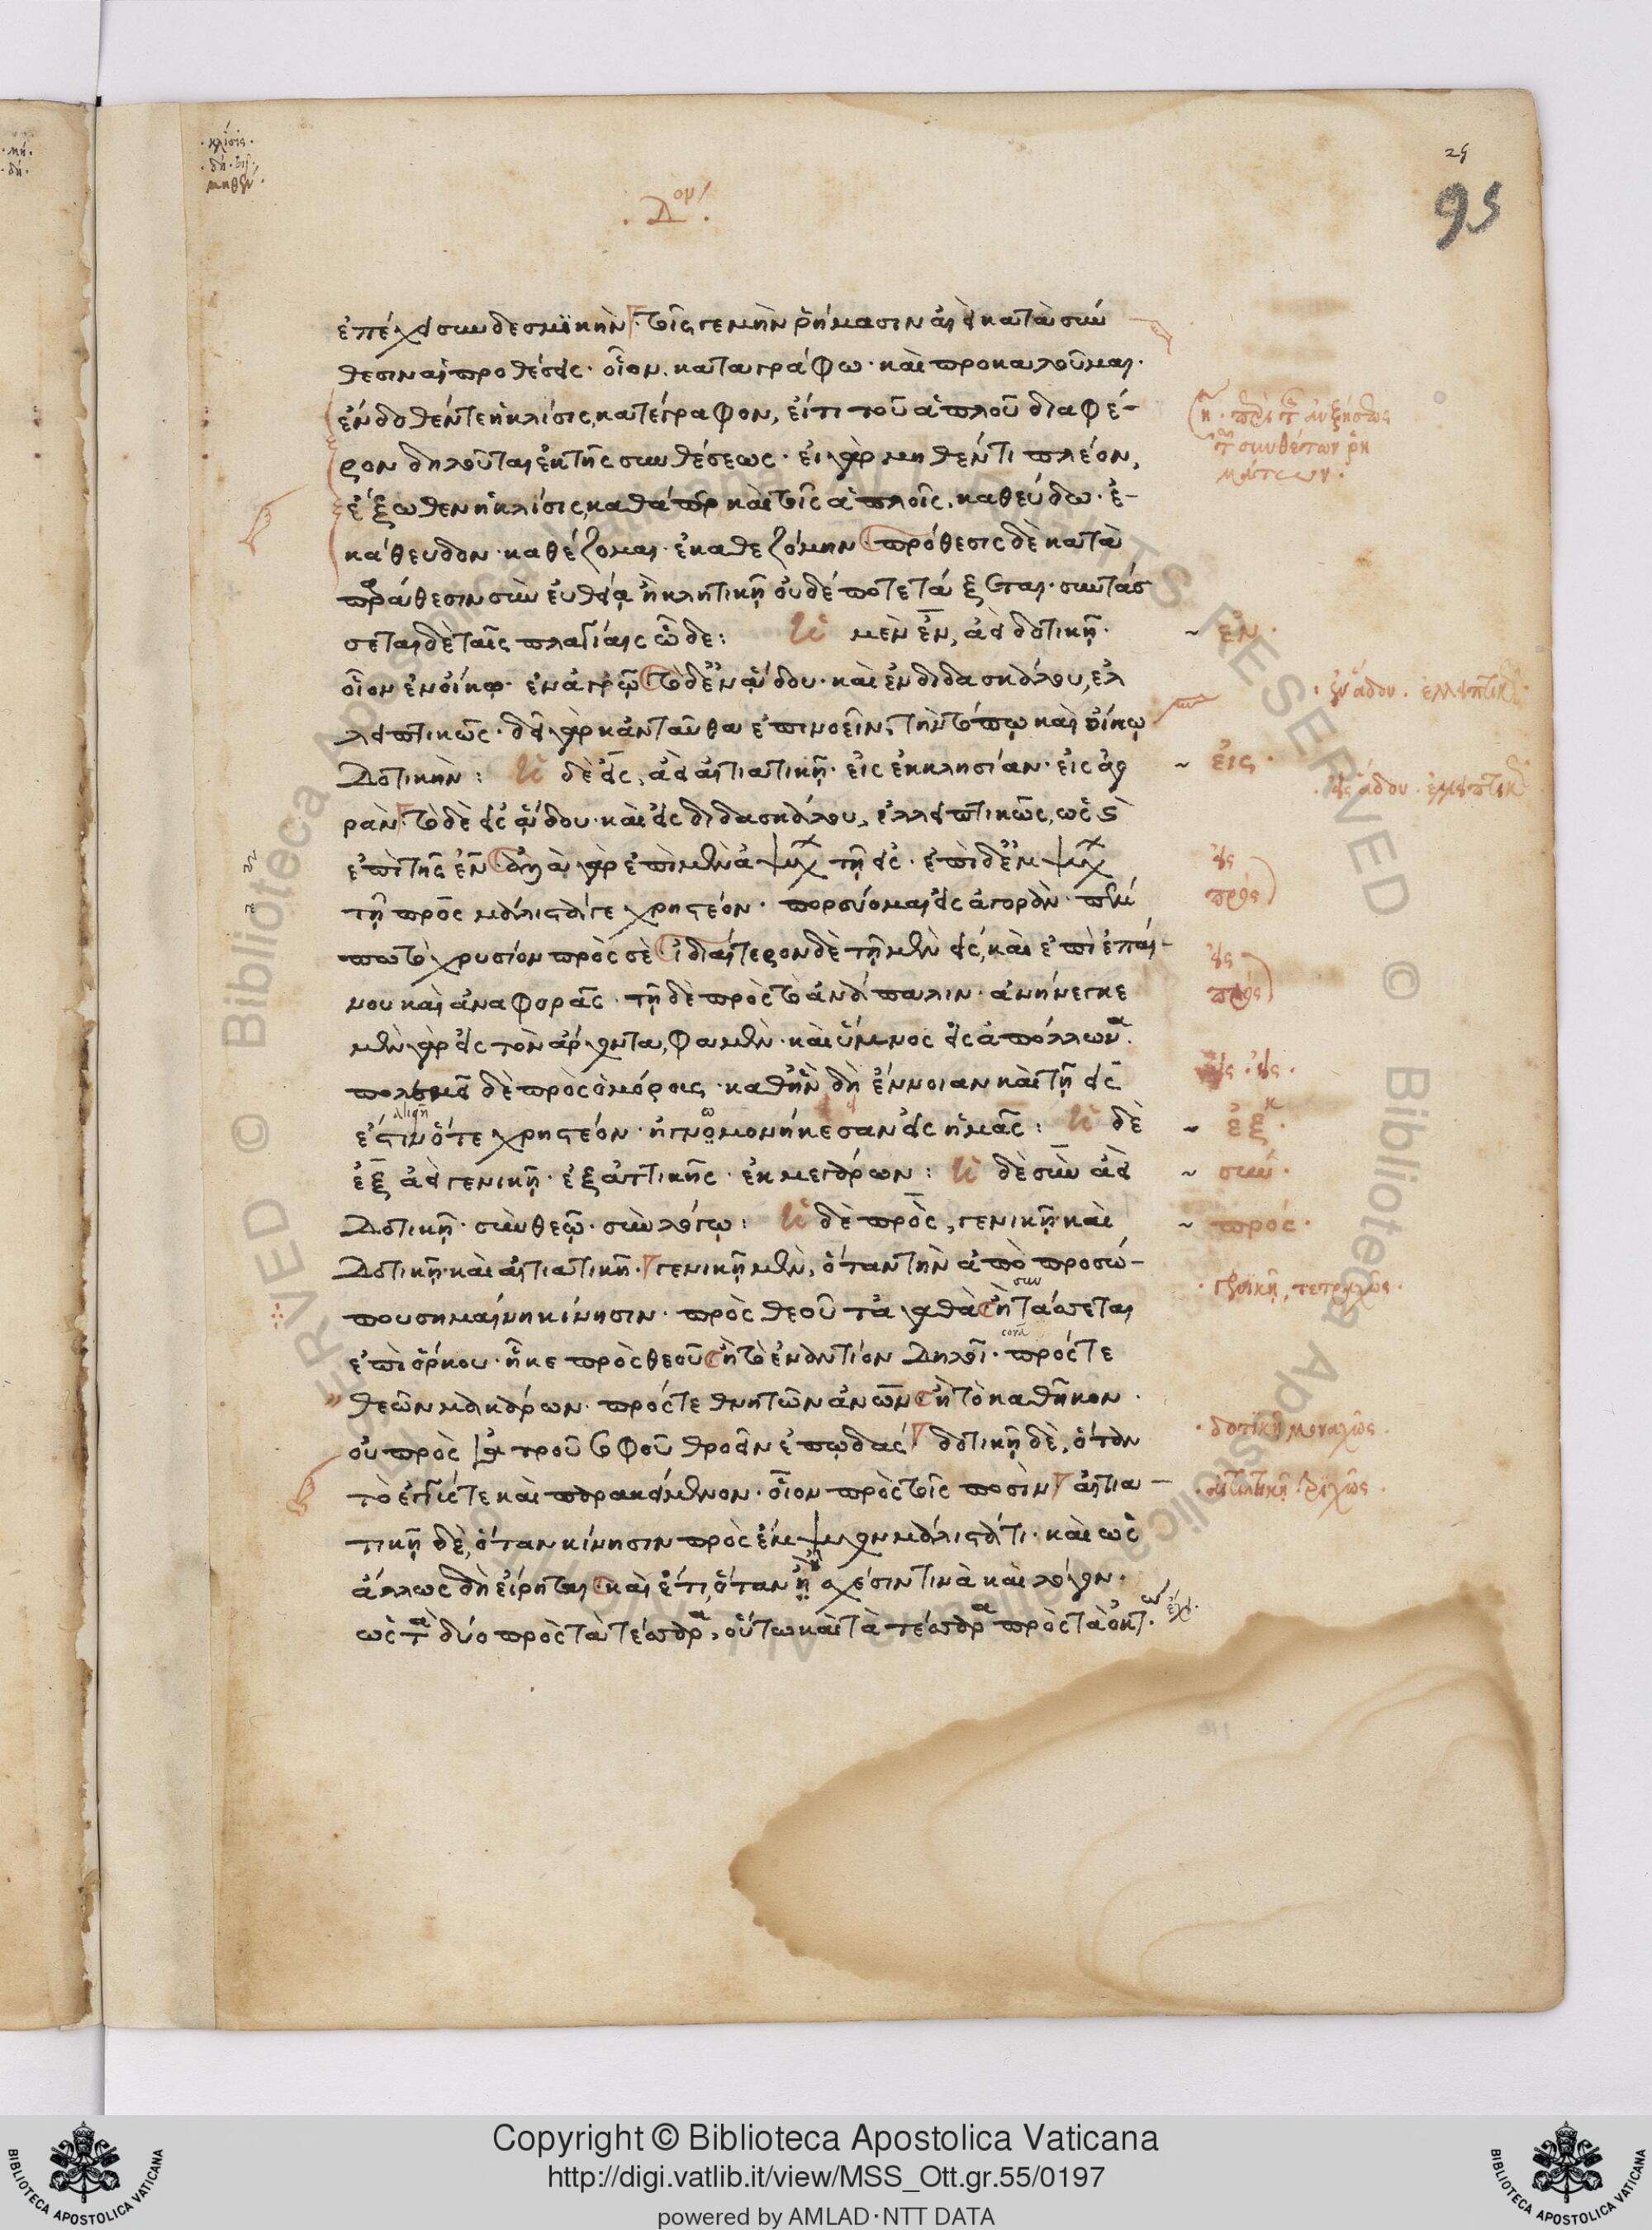 95
ἐπέχει συνδεσμικήν· τοῖς γε μὴν ῥήμασιν ἀεὶ κατὰ σύν
θεσιν αἱ προθέσεις· οἷον, καταγράφω· καὶ προκαλοῦμαι·
ἔνδοθέν τε ἡ κλίσις, κατέγραφον, εἴ τι τοῦ ἁπλοῦ διαφέ-
ρον δηλοῦται ἐκ τῆς συνθέσεως· εἰ γὰρ μηθέν τι πλέον,
ἔξωθεν ἡ κλίσις, καθάπερ καὶ τοῖς ἁπλοῖς, καθεύδω· ἐ-
κάθευδον· καθέζομαι· ἐκαθεζόμην· πρόθεσις δὲ κατὰ
παράθεσιν σὺν εὐθείᾳ ἢ κλητικῇ οὐδέποτε τάξεται· συντάσ
σεται δὲ ταῖς πλαγίαις ὧδε: μὲν ἐν, ἀεὶ δοτικῇ·
οἷον ἐν οἴκῳ· ἐν ἀγρῷ· τὸ δ' ἐν ᾅδου· καὶ ἐν διδασκάλου, ἐλ
λειπτικῶς· δεῖ γὰρ κἀνταῦθα ἐπινοεῖν, τὴν τόπῳ καὶ οἴκῳ
δοτικήν: δὲ εἰς, ἀεὶ αἰτιατικῇ· εἰς ἐκκλησίαν· εἰς ἀγο
ράν· τὸ δὲ εἰς ᾅδου· καὶ εἰς διδασκάλου, ἐλλειπτικῶς, ὡς
ἐπὶ τῆς ἐν· ἐπὶ μὲν ἀψύχων τῇ εἰς· ἐπὶ δ' ἐμψύχων
τῇ πρὸς μάλιστά γε χρηστέον· πορεύομαι εἰς ἀγοράν· πέμ
πω τὸ χρυσίον πρὸς σέ· ἰδιαίτερον δὲ τῇ μὲν εἰς, καὶ ἐπὶ ἐπαί-
νου καὶ ἀναφορᾶς· τῇ δὲ πρὸς τὸ ἀνάπαλιν· ἀνήνεγκε
μὲν γὰρ εἰς τὸν ἄρχοντα, φαμέν· καὶ ὕμνος εἰς ἀπόλλωνα.
πολεμεῖ δὲ πρὸς ὁμόρους· καθ' ἣν δὴ ἔννοιαν καὶ τῇ εἰς
ἔστιν ὅτε χρηστέον· ἠγνωμονήκεσαν εἰς ἡμᾶς: δὲ
ἐξ ἀεὶ γενικῇ· ἐξ ἀττικῆς· ἐκ μεγάρων: δὲ σὺν ἀεὶ
δοτικῇ· σὺν θεῷ· σὺν λόγῳ: δὲ πρὸς, γενικῇ καὶ
δοτικῇ· καὶ αἰτιατικῇ· γενικῇ μὲν, ὅταν τὴν ἀπὸ προσώ-
που σημαίνῃ κίνησιν· πρὸς θεοῦ τἀγαθά· ἢ τάσσεται
ἐπὶ ὅρκου· ἧκε πρὸς θεοῦ· ἢ τὸ ἐναντίον δηλοῖ· πρός τε
θεῶν μακάρων· πρός τε θνητῶν ἀνων· ἢ τὸ καθῆκον·
οὐ πρὸς ἰατροῦ σοφοῦ θροεῖν ἐπῳδάς· δοτικῇ δὲ, ὅταν
τὸ ἐγγύς τε καὶ παρακείμενον· οἷον πρὸς τοῖς ποσίν· αἰτια-
τικῇ δὲ, ὅταν κίνησιν πρὸς ἔμψυχον μάλιστά τι· καὶ ὡς
ἄλλως δὴ εἴρηται· καὶ ἔτι, ὅταν ᾖ σχέσιν τινὰ καὶ λόγον·
ὡς τὰ δύο πρὸς τὰ τέσσαρα, οὕτω καὶ τὰ τέσσαρα πρὸς τὰ ὀκτώ· ἔχει·
ἐν·
ἐν ᾅδου· ἐλλειπτικῶς·
εἰς·
εἰς ᾅδου· ἐλλειπτικῶς
εἰς
πρός
εἰς
πρός
ἐξ·
σύν·
πρός·
γενικῇ, τετραχῶς·
δοτικῇ μοναχῶς·
αἰτιατικῇ διχῶς·
Copyright © Biblioteca Apostolica Vaticana
http://digi.vatlib.it/view/MSS_Ott.gr.55/0197
powered by AMLAD·NTT DATA